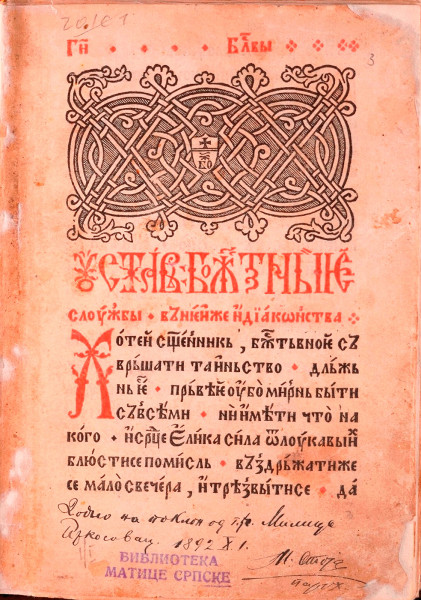 3
СТАВЬ БОЖ҇СТВНЫЕ
слоужбы · въ нюиже и дїаконства
Хотеи сщ҃енникь, бж҃тьвноѥ съ
врьшати таиньство · дльжь
нь ѥ · прьвѣѥ оубо мирнь быти
съ всѣми · и не имѣти что на
кого · и срце ѥлика сила ѿ лоукавыи
блюстисе помисль · въздрьжатиже
се мало съ вечера, и трѣзвытисе · да
Добио на поклон од гђе. Милице
1892 X. 1.
БИБЛИОТЕКА
МАТИЦЕ СРПСКЕ